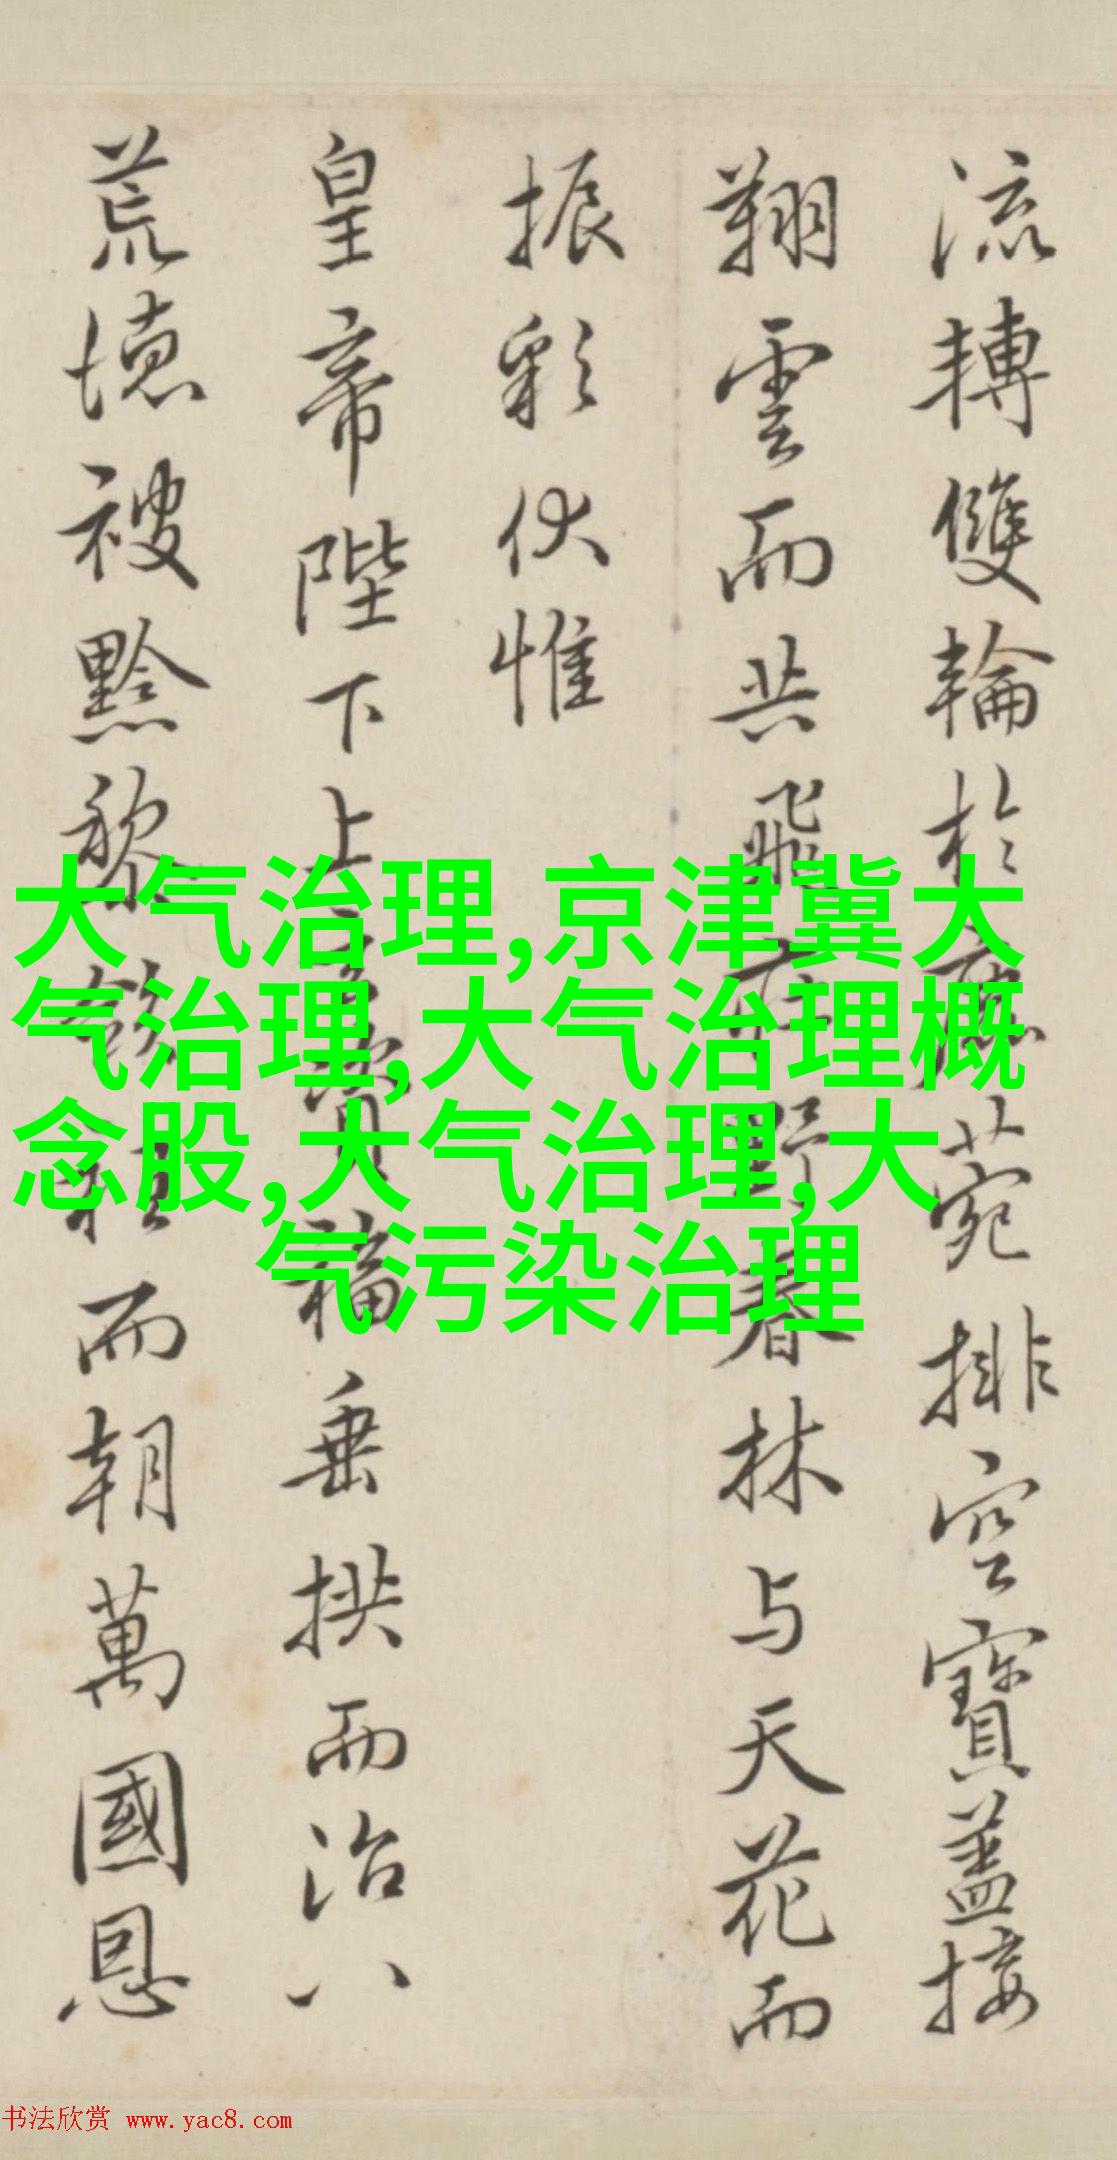 流轉雙輪於鹿菀排空寶蓋接
翔雲而共飛莊野春林与天花而
振彩伏惟
皇帝陛下上玄資福垂拱而治八
荒德被黔黎斂衽而朝萬國恩
大气治理,京津冀大
气治理,大气治理概
念股,大气治理,大
气污染治理
书法欣赏 www.yac8.com